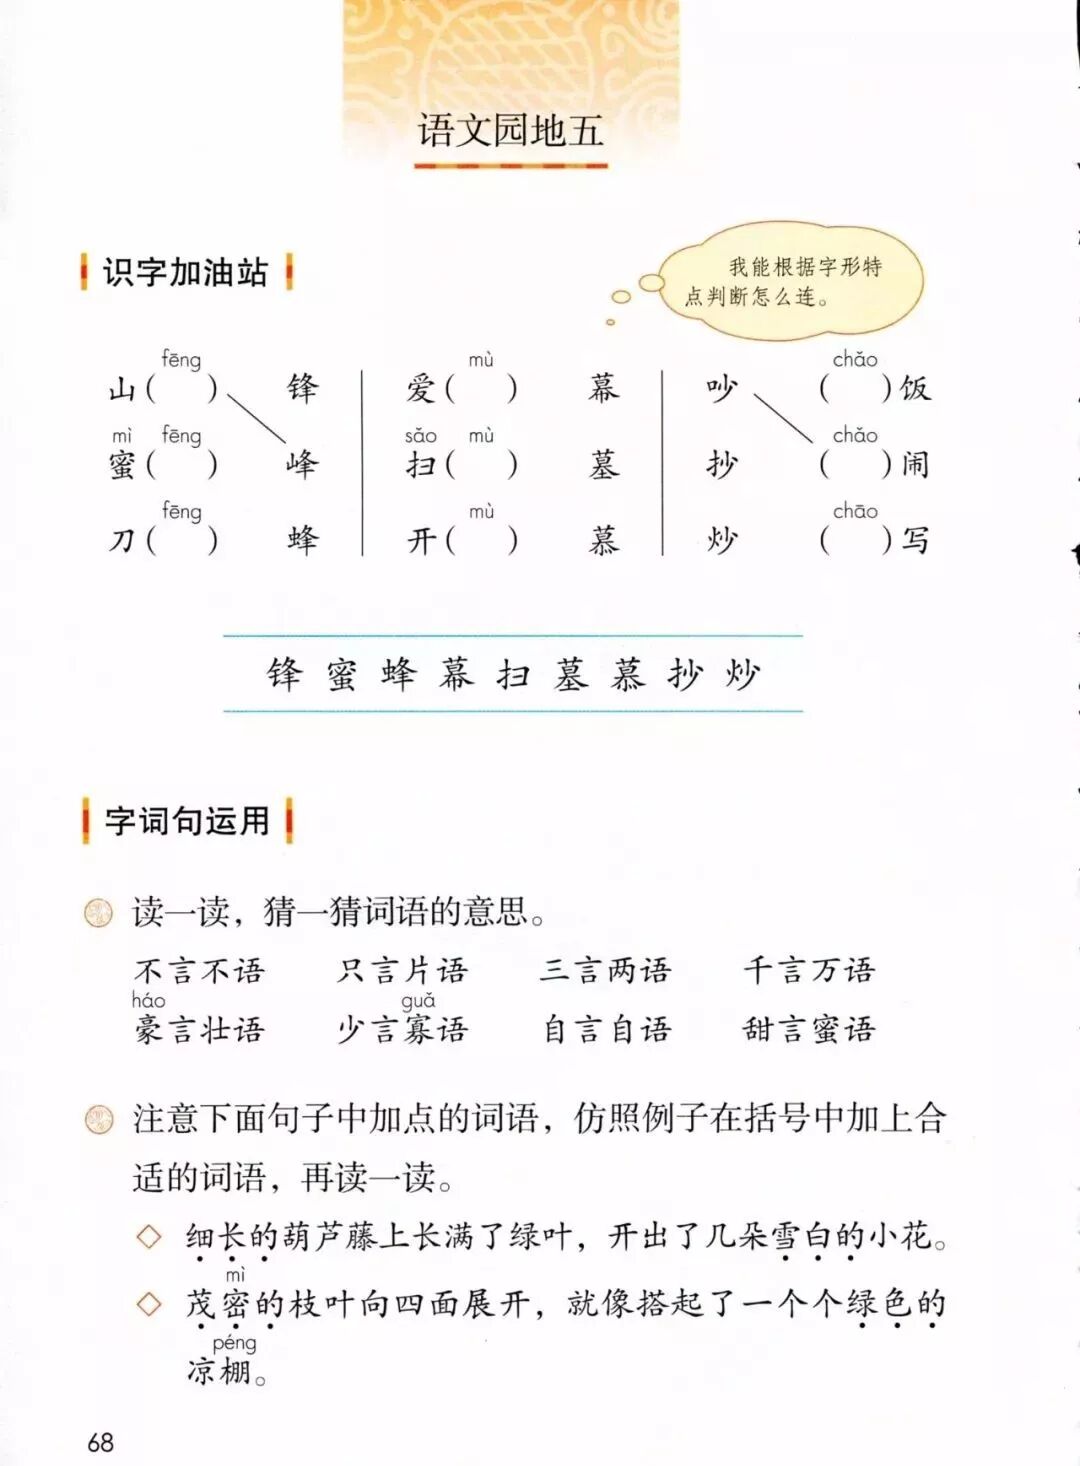 语文园地五
识字加油站
我能根据字形特
点判断怎么连。
fēng mù chǎo
山( ) 锋 爱( ) 幕 吵 ( )饭
mì fēng sǎo mù chǎo
蜜( ) 峰 扫( ) 墓 抄 ( )闹
fēng mù chāo
刀( ) 蜂 开( ) 慕 炒 ( )写
锋 蜜 蜂 幕 扫 墓 慕 抄 炒
字词句运用
读一读，猜一猜词语的意思。
不言不语 只言片语 三言两语 千言万语
háo guǎ
豪言壮语 少言寡语 自言自语 甜言蜜语
注意下面句子中加点的词语，仿照例子在括号中加上合
适的词语，再读一读。
细长的葫芦藤上长满了绿叶，开出了几朵雪白的小花。
mì
茂密的枝叶向四面展开，就像搭起了一个个绿色的
péng
凉棚。
68